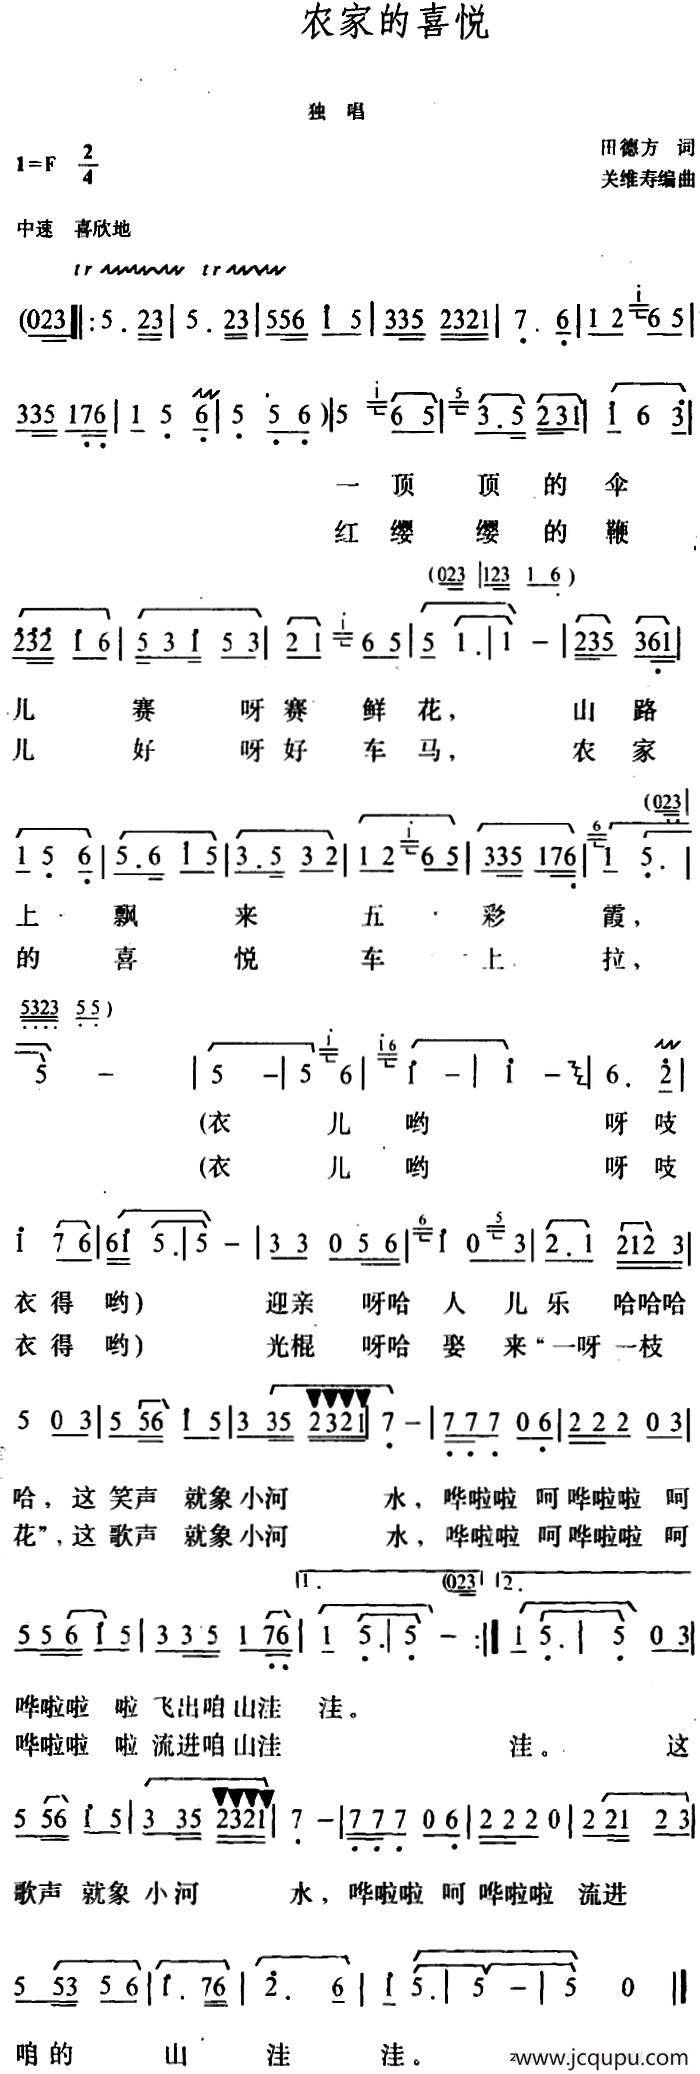 农家的喜悦
独 唱
1=F 2/4
田德方 词
关维寿编曲
中速 喜欣地
tr tr
(023 ‖: 5.23 | 5.23 | 556 i 5 | 335 2321 | 7. 6 | 1 2 i 65 |
335 176 | 1 5 6 | 5 5 6 ) | 5 i 65 | 5 3.5 231 | i 6 3 |
一 顶 顶 的 伞
红 缨 缨 的 鞭
(023 | 123 1 6 )
232 i 6 | 5 3 i 5 3 | 2 1 i 6 5 | 5 1. | 1 - | 235 361 |
儿 赛 呀 赛 鲜 花, 山 路
儿 好 呀 好 车 马, 农 家
(023 |
1 5 6 | 5.6 i 5 | 3.5 3 2 | 1 2 i 65 | 335 176 | 6 1 5. |
上 飘 来 五 彩 霞,
的 喜 悦 车 上 拉,
5323 5 5 )
5 - | 5 - | 5 i 6 | i6 i - | i - | 6. 2 |
(衣 儿 哟 呀 吱
(衣 儿 哟 呀 吱
i 7 6 | 6i 5. | 5 - | 3 3 0 5 6 | 6 i 0 5 3 | 2. 1 212 3 |
衣 得 哟) 迎亲 呀哈 人 儿 乐 哈哈哈
衣 得 哟) 光棍 呀哈 娶 来 “一呀 一枝
5 0 3 | 5 56 i 5 | 3 35 2321 | 7 - | 7 7 7 0 6 | 2 2 2 0 3 |
哈, 这 笑声 就象 小河 水, 哗啦啦 呵 哗啦啦 呵
花”, 这 歌声 就象 小河 水, 哗啦啦 呵 哗啦啦 呵
1. (023 2.
5 5 6 i 5 | 3 3 5 1 76 | 1 5. | 5 - :‖ 1 5. | 5 0 3 |
哗啦啦 啦 飞出咱 山洼 洼。
哗啦啦 啦 流进咱 山洼 洼。 这
5 56 i 5 | 3 35 2321 | 7 - | 7 7 7 0 6 | 2 2 2 0 | 2 21 2 3 |
歌声 就象 小河 水, 哗啦啦 呵 哗啦啦 流进
5 53 5 6 | i. 76 | 2. 6 | i 5. | 5 - | 5 0 ‖
咱的 山 洼 洼。
www.jcqupu.com